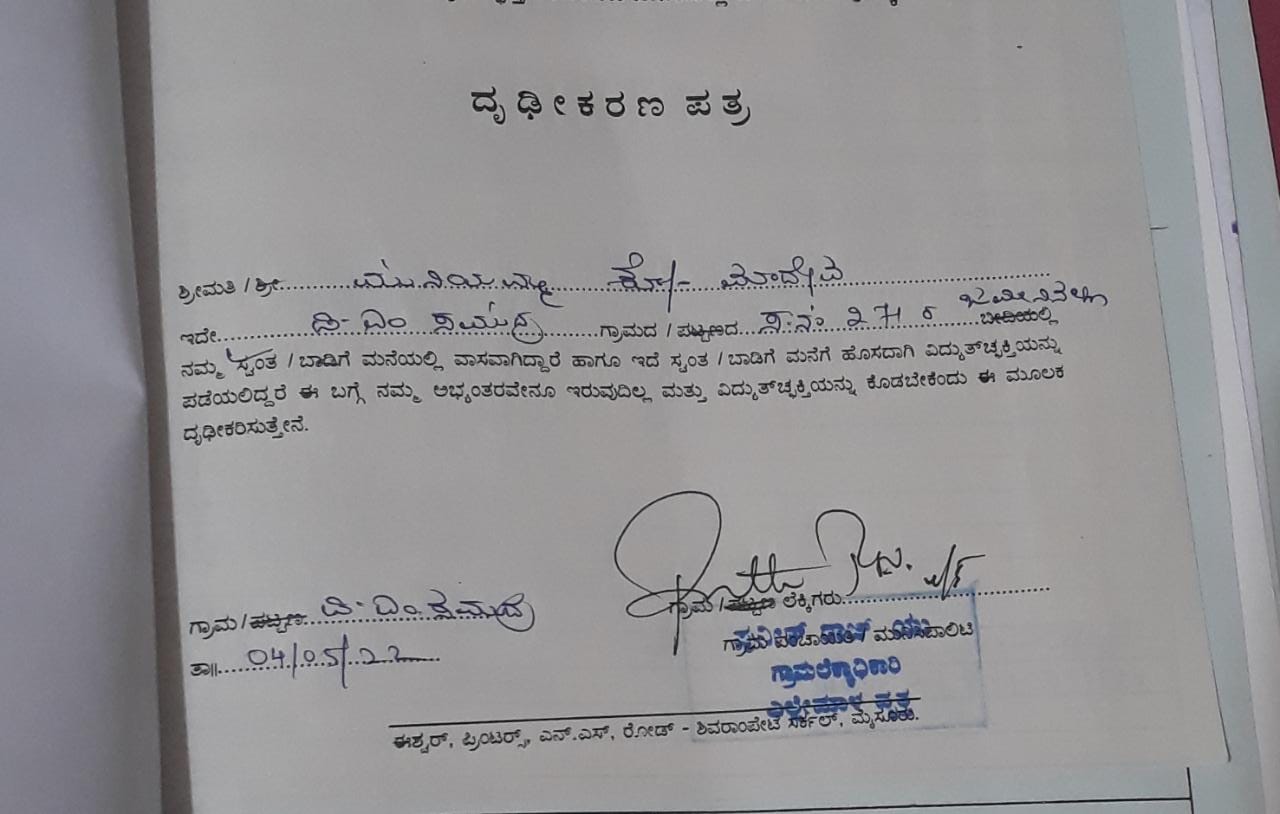 ದೃಢೀಕರಣ ಪತ್ರ
ಶ್ರೀಮತಿ / ಶ್ರೀ ಮುನಿಯಮ್ಮ ಕೋ/- ಮಾದೇವ
ಇದೇ ಡಿ-ಎಂ ಸಮುದ್ರ ಗ್ರಾಮದ / ಪಟ್ಟಣದ ಸ.ನಂ 271 ರ ಜಮೀನಿನಲ್ಲಿ ಬೀದಿಯಲ್ಲಿ
ನಮ್ಮ ಸ್ವಂತ / ಬಾಡಿಗೆ ಮನೆಯಲ್ಲಿ ವಾಸವಾಗಿದ್ದಾರೆ ಹಾಗೂ ಇದೆ ಸ್ವಂತ / ಬಾಡಿಗೆ ಮನೆಗೆ ಹೊಸದಾಗಿ ವಿದ್ಯುತ್‌ಚ್ಛಕ್ತಿಯನ್ನು
ಪಡೆಯಲಿದ್ದರೆ ಈ ಬಗ್ಗೆ ನಮ್ಮ ಅಭ್ಯಂತರವೇನೂ ಇರುವುದಿಲ್ಲ ಮತ್ತು ವಿದ್ಯುತ್‌ಚ್ಛಕ್ತಿಯನ್ನು ಕೊಡಬೇಕೆಂದು ಈ ಮೂಲಕ
ದೃಢೀಕರಿಸುತ್ತೇನೆ.
ಗ್ರಾಮ / ಪಟ್ಟಣ ಲೆಕ್ಕಿಗರು
ಗ್ರಾಮ / ಪಟ್ಟಣ ಡಿ-ಎಂ.ಸಮುದ್ರ
ಗ್ರಾಮ ಪಂಚಾಯಿತಿ / ಮುನಿಸಿಪಾಲಿಟಿ
ತಾ॥ 04/05/22
ಗ್ರಾಮಲೆಕ್ಕಾಧಿಕಾರಿ
ಈಶ್ವರ್, ಪ್ರಿಂಟರ್ಸ್, ಎನ್.ಎಸ್, ರೋಡ್ - ಶಿವರಾಂಪೇಟೆ ಸರ್ಕಲ್, ಮೈಸೂರು.